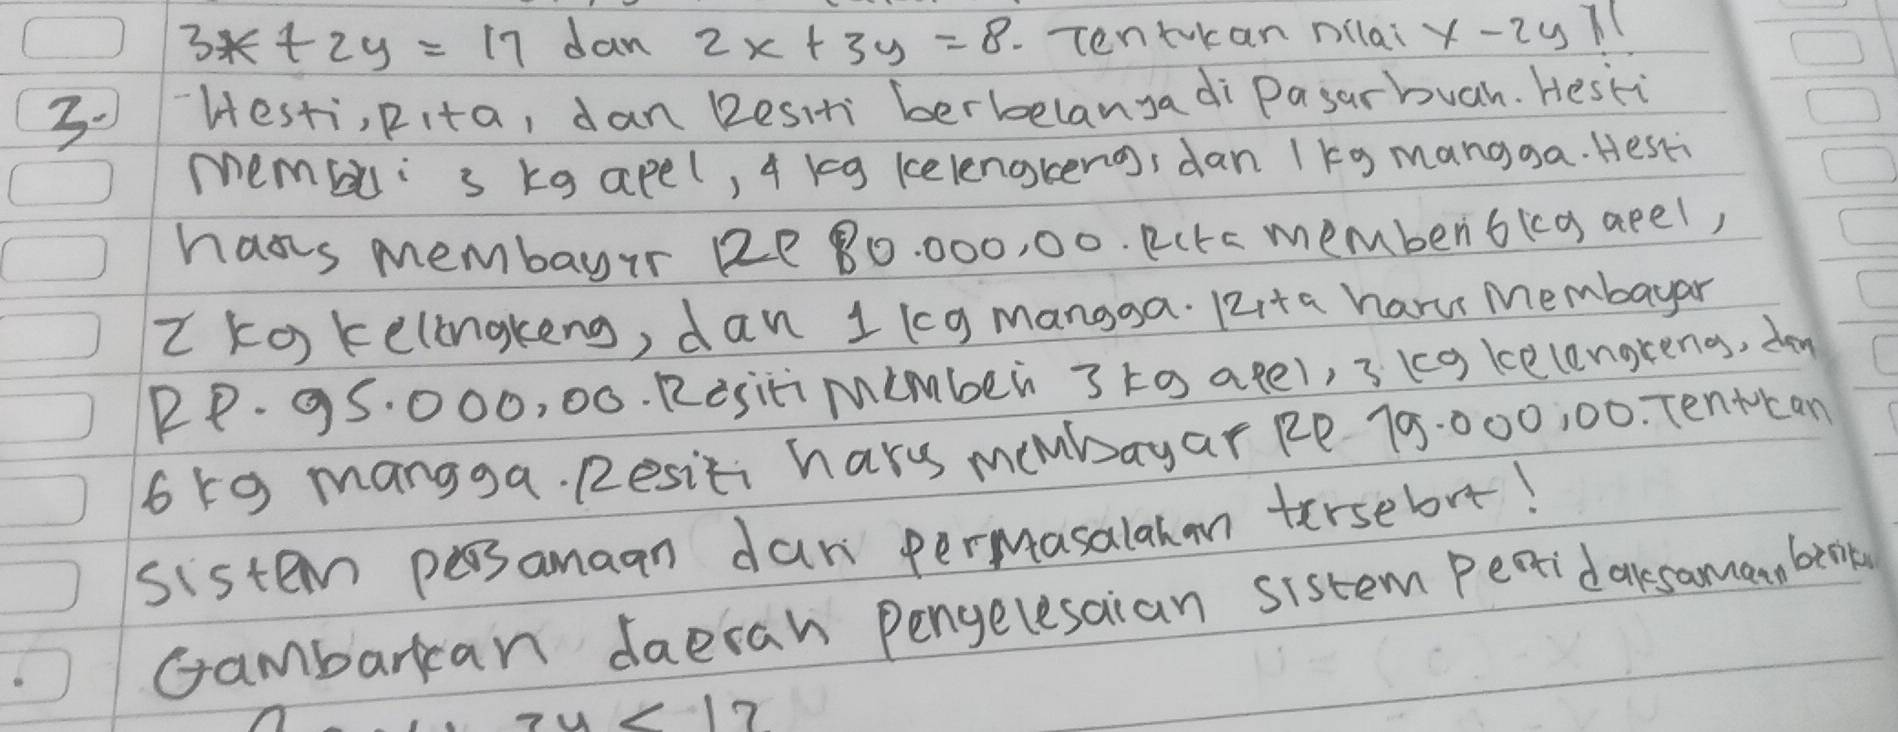 3x + 2y = 17 dan 2x + 3y = 8. Tentukan nilai x - 2y !!
3. Hesti, Rita, dan Resiti berbelanya di Pasar buah. Hesti
membli 3 kg apel, 4 kg kelengkeng, dan 1 kg mangga. Hesti
harus membayar RP 80.000,00. Rita memberi 6 kg apel,
2 kg kelengkeng, dan 1 kg mangga. Rita harus Membayar
RP. 95.000,00. Resiti memberi 3 kg apel, 3 kg kelengkeng, dan
6 kg mangga. Resiti harus membayar RP 79.000,00. Tentukan
sistem persamaan dari permasalahan tersebut!
Gambarkan daerah Pengelesaian sistem Pertidaksamaan
2y < 12